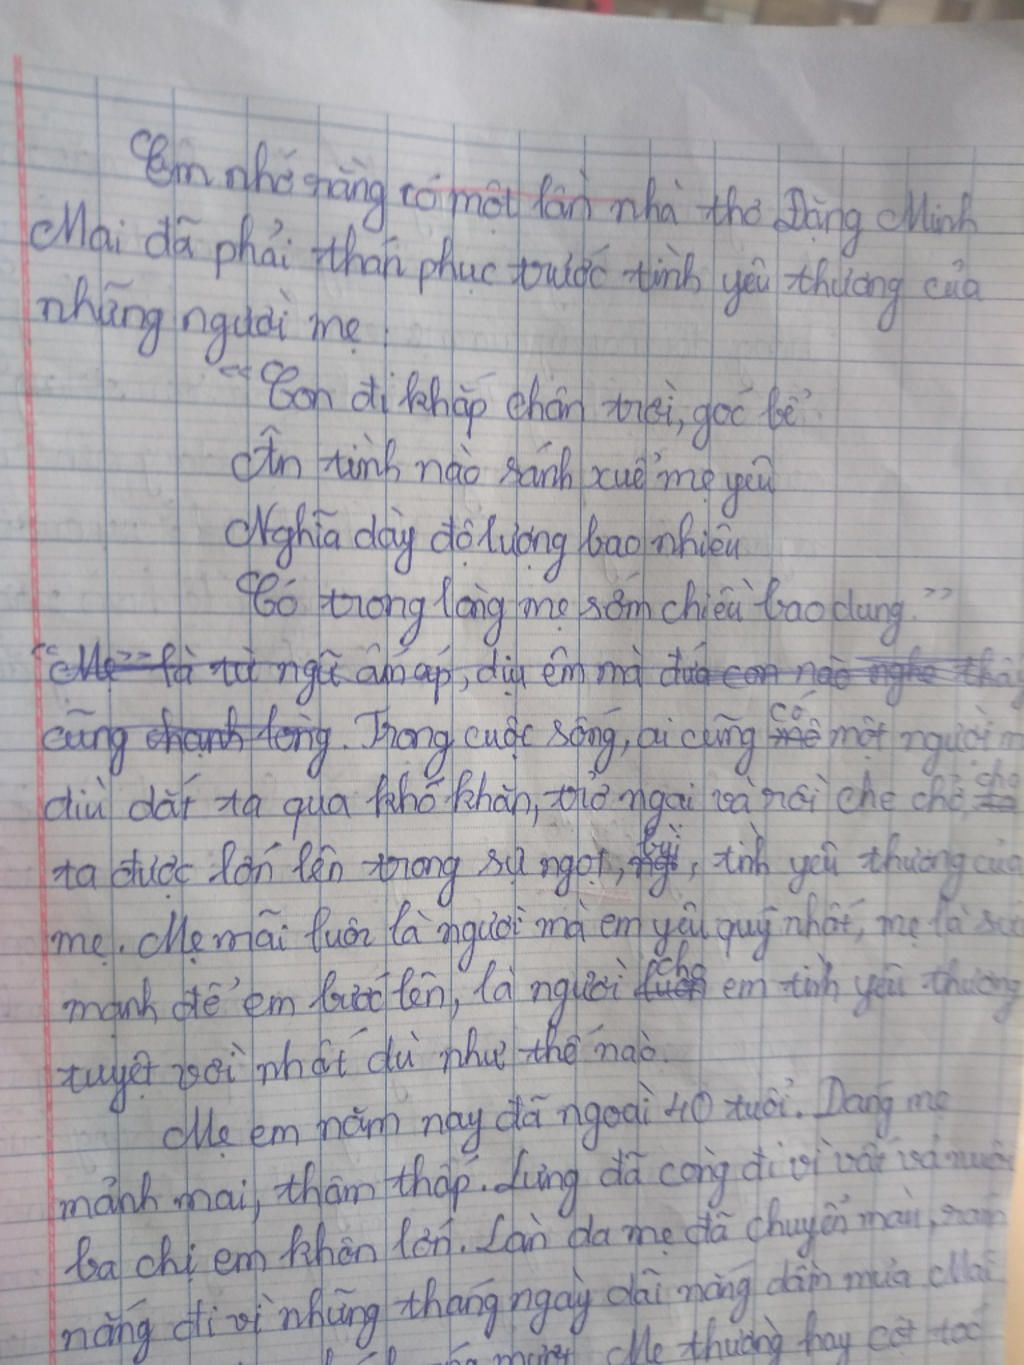 Em nhớ rằng có một lần nhà thơ Đặng Minh
Mai đã phải thán phục trước tình yêu thương của
những người mẹ:
"Con đi khắp chân trời, góc bể
Ân tình nào sánh xuể mẹ yêu
Nghĩa dày độ lượng bao nhiêu
Có trong lòng mẹ sớm chiều bao dung."
"Mẹ" là từ ngữ ấm áp, dịu êm mà đứa con nào nghe thấy
cũng chạnh lòng. Trong cuộc sống, ai cũng có một người
dìu dắt ta qua khó khăn, trở ngại và rồi che chở, cho
ta được lớn lên trong sự ngọt, bùi, tình yêu thương của
mẹ. Mẹ mãi luôn là người mà em yêu quý nhất, mẹ là sức
mạnh để em bước lên, là người cho em tình yêu thương
tuyệt vời nhất dù như thế nào.
Mẹ em năm nay đã ngoài 40 tuổi. Dáng mẹ
mảnh mai, thâm thấp. Lưng đã còng đi vì vất vả nuôi
ba chị em khôn lớn. Làn da mẹ đã chuyển màu, rám
nắng đi vì những tháng ngày dãi nắng dầm mưa
Mẹ thường hay cột tóc